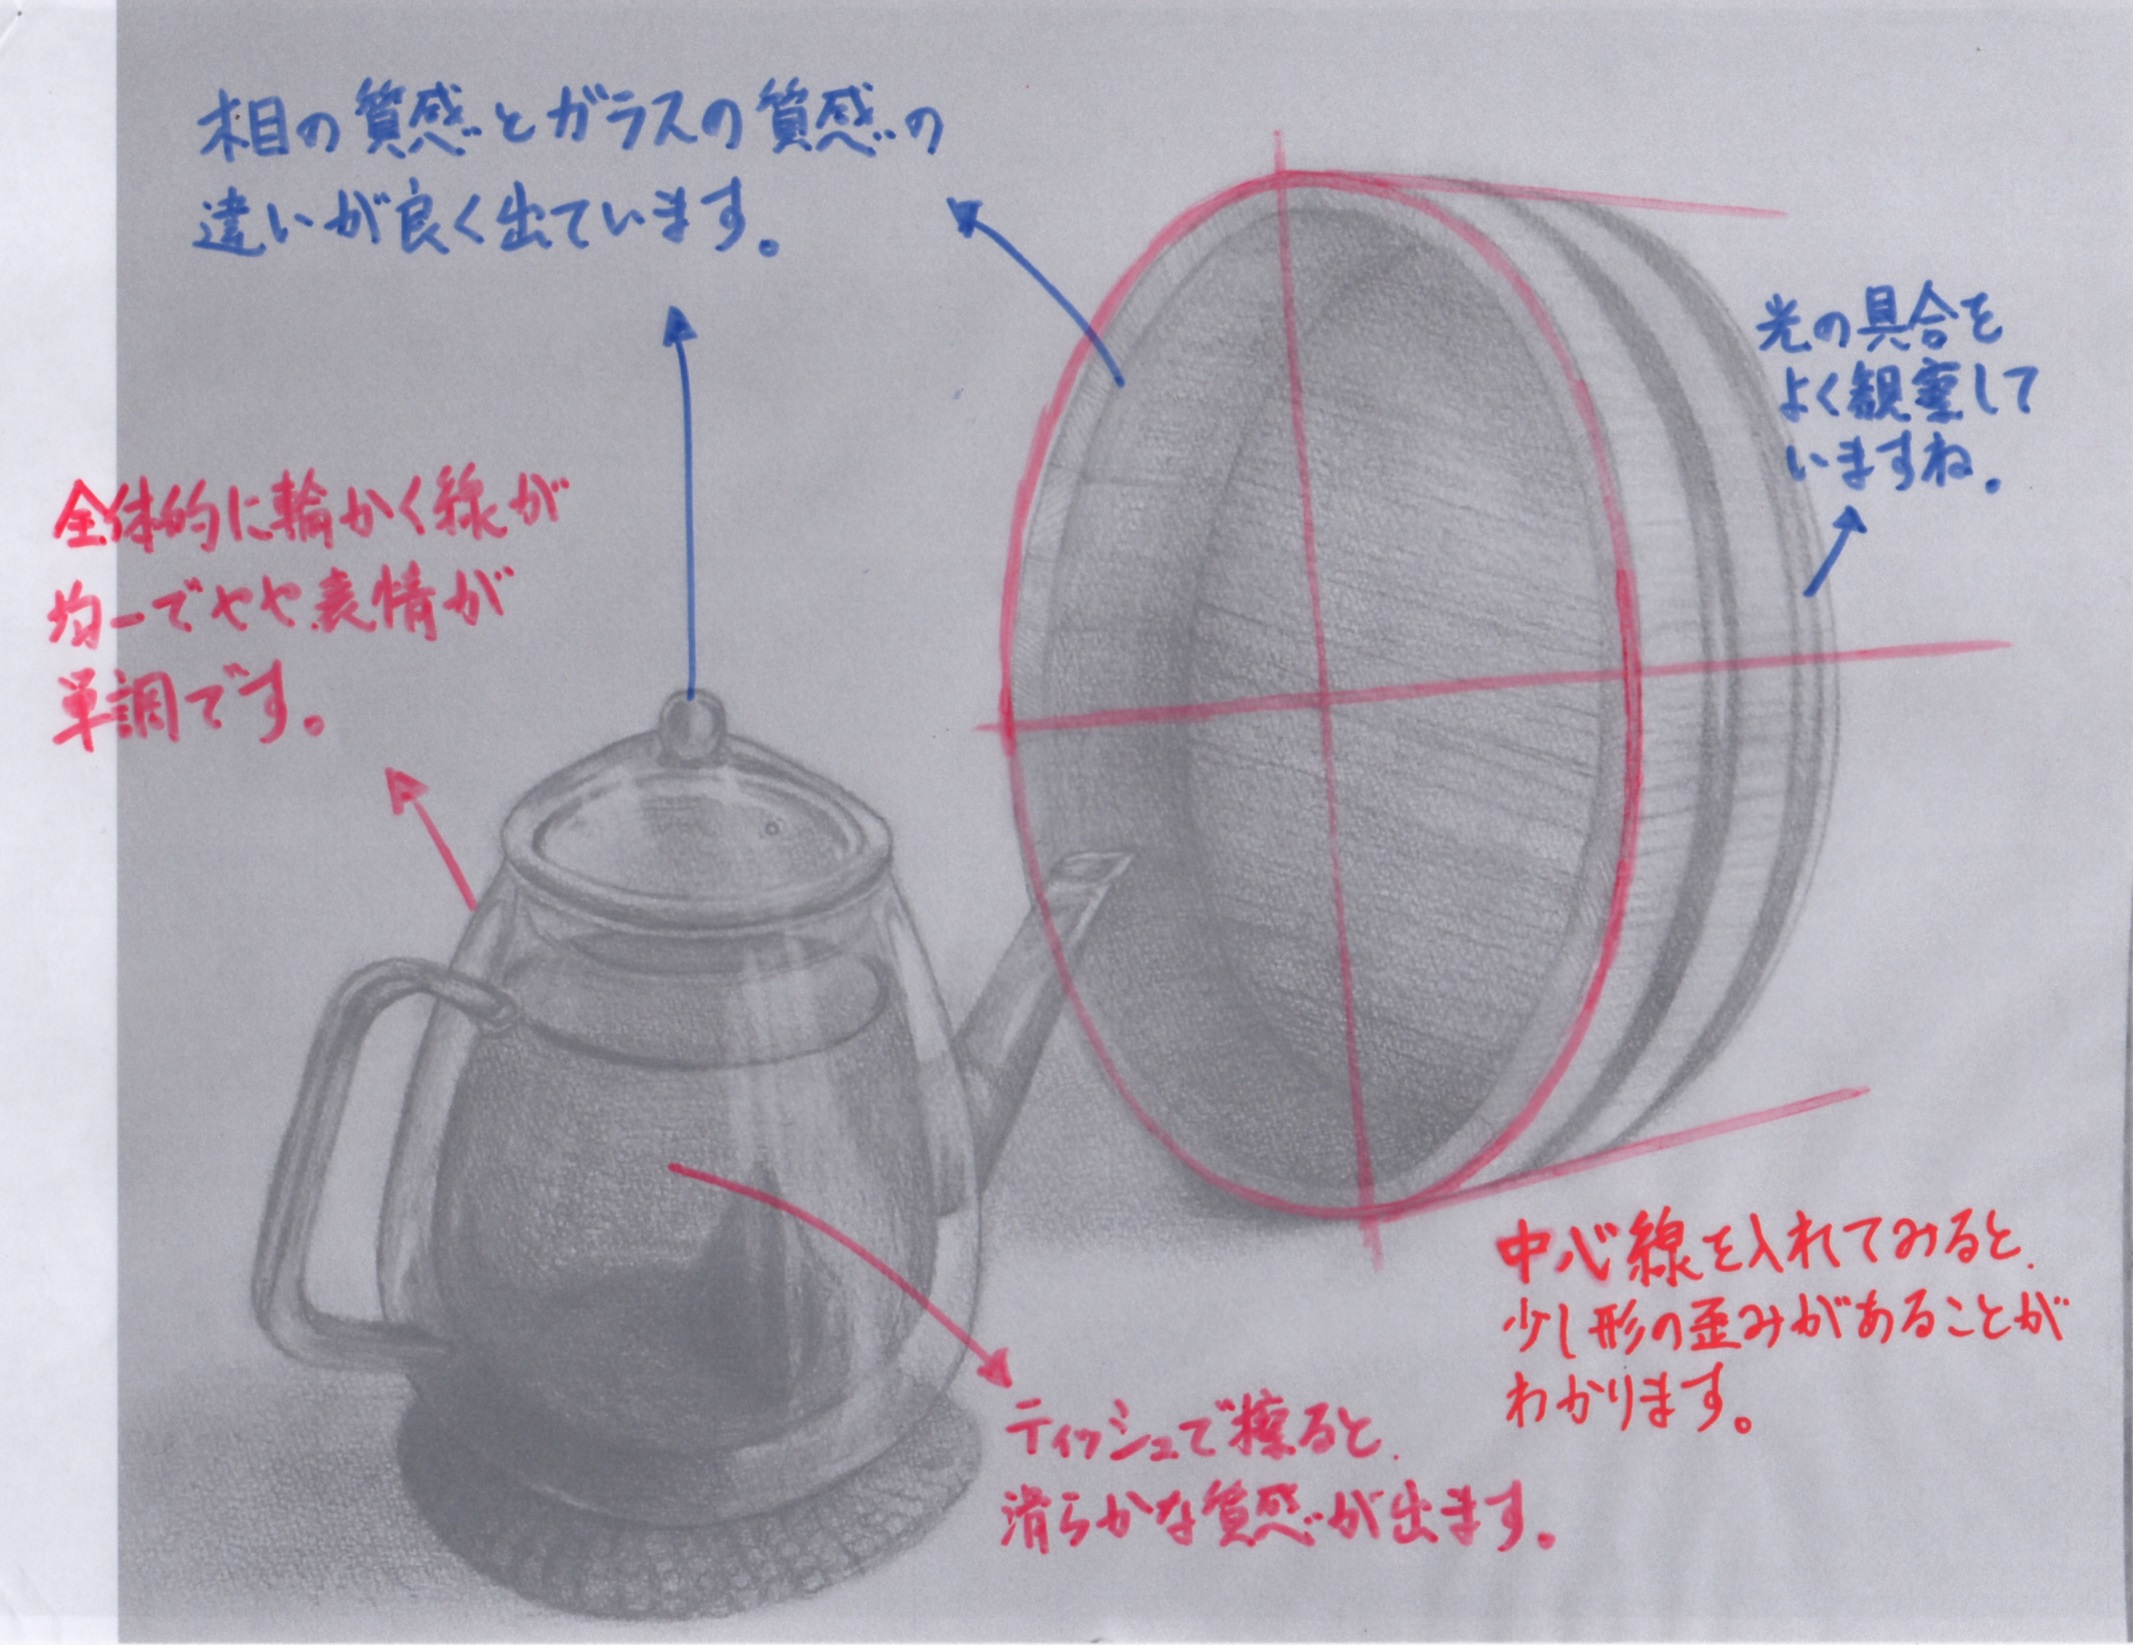 木目の質感とガラスの質感の
違いが良く出ています。
光の具合を
よく観察して
いますね。
全体的に輪かく線が
均一でやや表情が
単調です。
中心線を入れてみると、
少し形の歪みがあることが
わかります。
ティッシュで擦ると、
滑らかな質感が出ます。